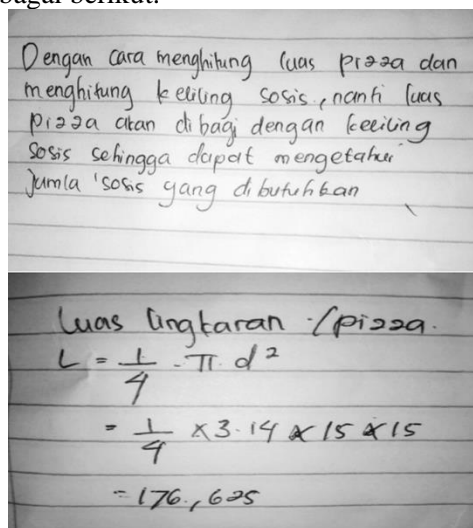 bagai berikut.
Dengan cara menghitung luas pizza dan
menghitung keliling sosis, nanti luas
pizza akan di bagi dengan keliling
sosis sehingga dapat mengetahui
Jumla sosis yang di butuhkan
luas lingkaran /pizza.
L = 1/4 . π . d²
= 1/4 x 3.14 x 15 x 15
= 176,625